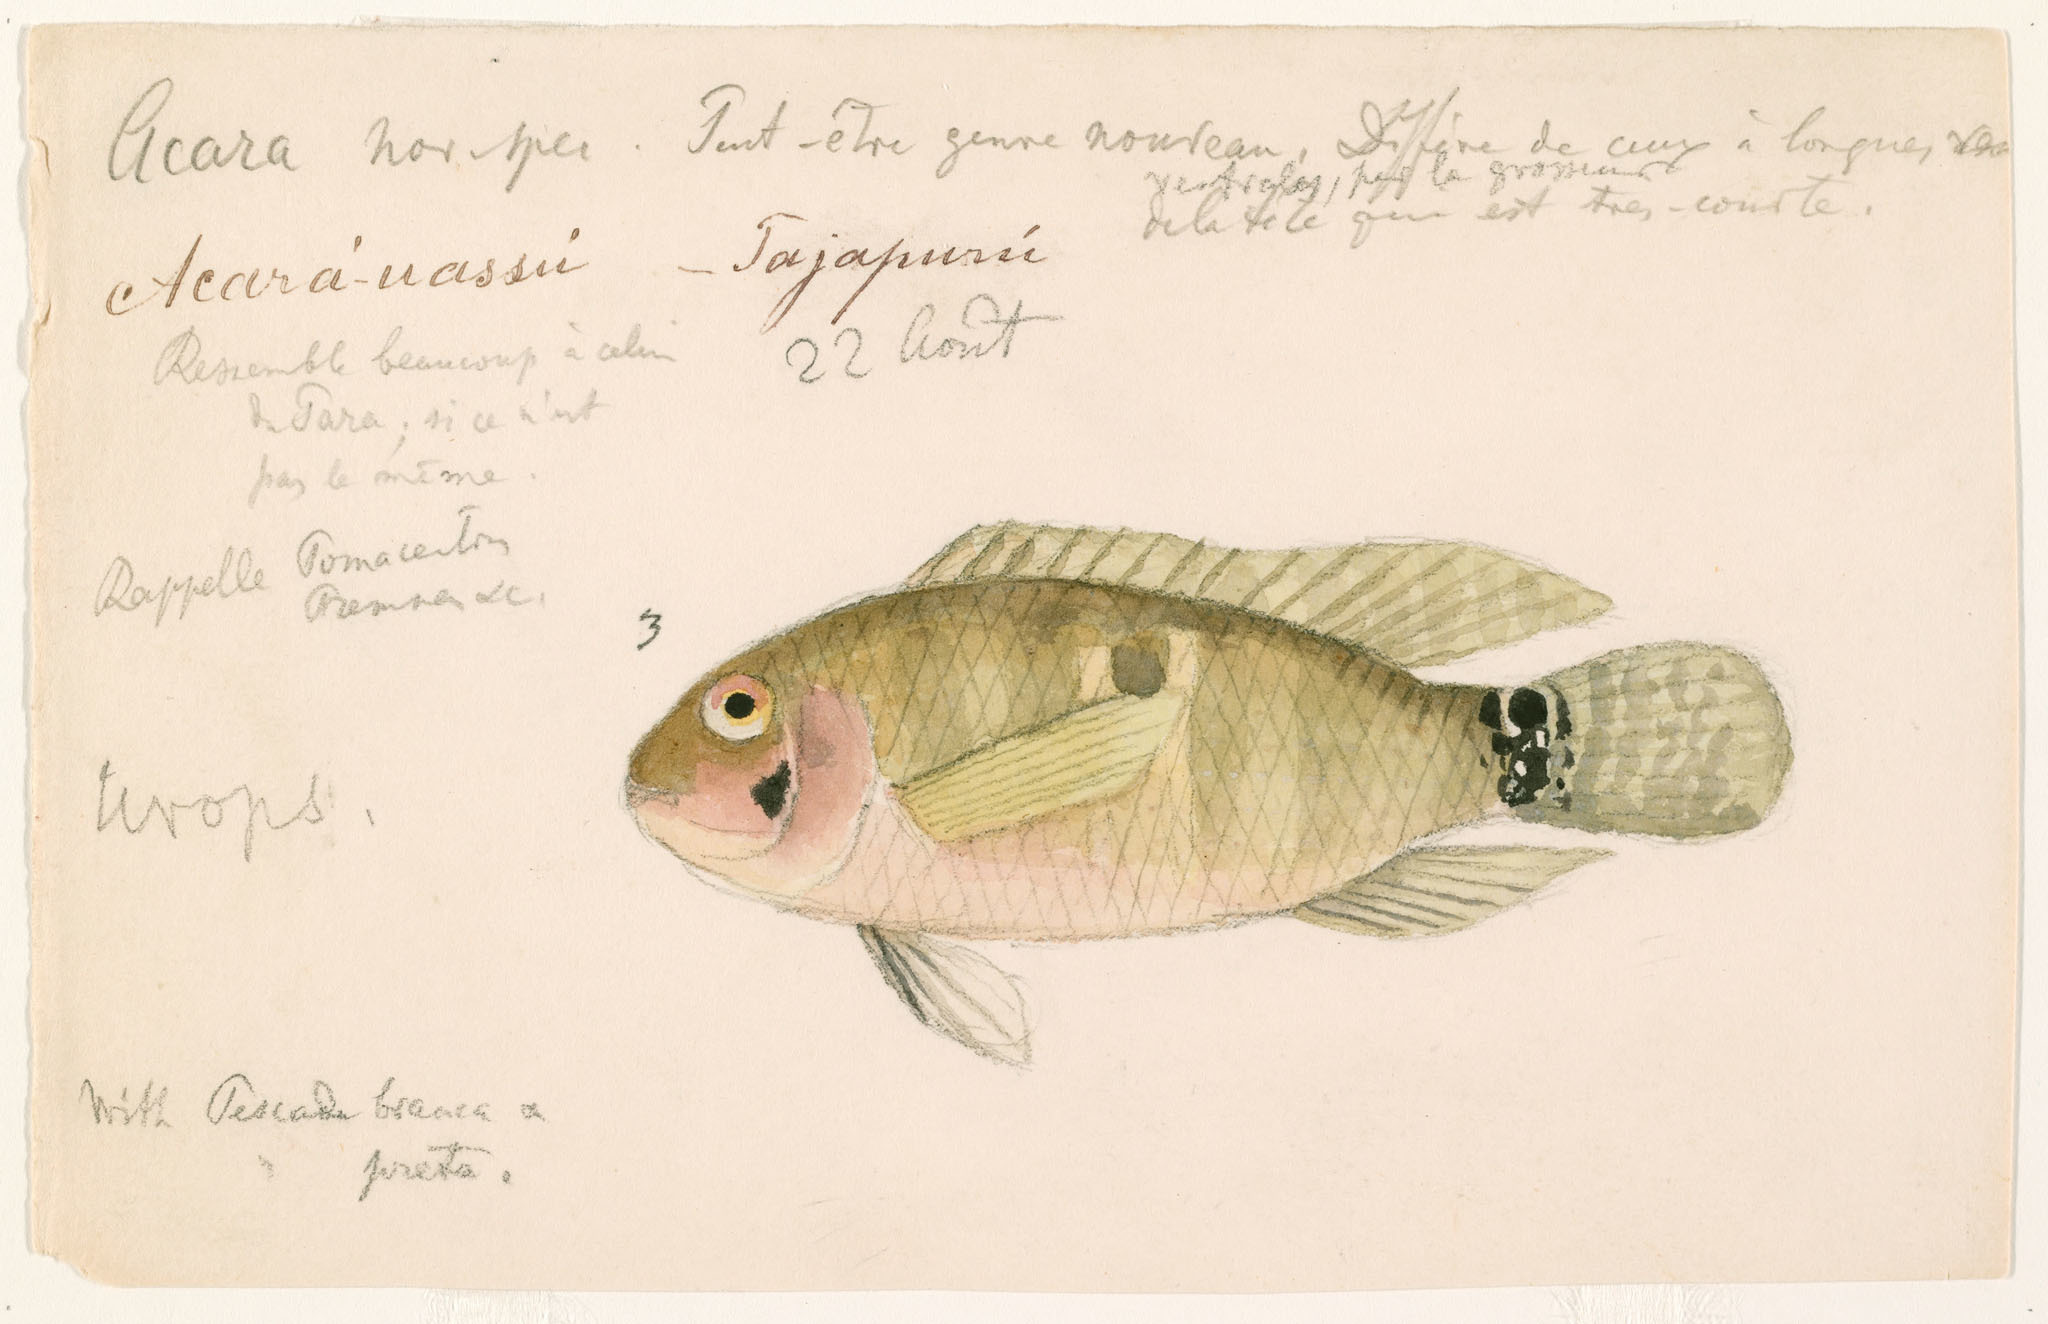 Acara nov. spec. Peut-être genre nouveau. Diffère de ceux à longues
ventrales, par la grosseur
de la tête qui est très-courte.
Acará-uassú – Tajapurú
22 Août
Ressemble beaucoup à celui
du Para, si ce n'est
pas le même.
Rappelle Pomacentrus
Premnas &c.
3
Urops.
With Pescada branca &
" preta.